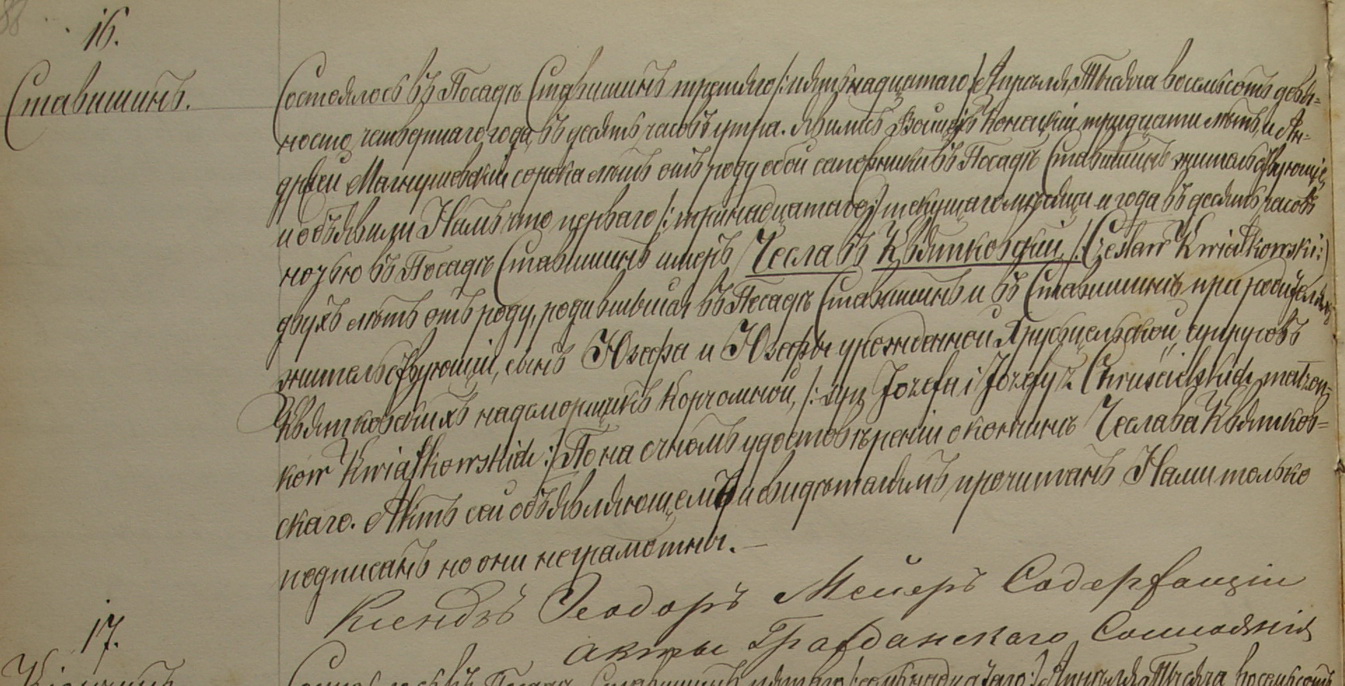 16.
Ставишинъ.
Состоялось въ Посадѣ Ставишинѣ третьяго /:пятьнадцатаго:/ Апрѣля, Тысяча восемьсотъ девя-
носто четвертаго года, въ десять часовъ утра. Явились Войцѣхъ Конецкій тридцати лѣтъ, и Ан-
дрей Магнушевскій сорока лѣтъ отъ роду обои сапожники въ Посадѣ Ставишинѣ жительствующіе
и объявили Намъ что перваго /:тринадцатаго:/ текущаго мѣсяца и года въ десять часовъ
ночью въ Посадѣ Ставишинѣ умеръ Чеславъ Квятковскій /:Czesław Kwiatkowski:/
двухъ лѣтъ отъ роду, родившійся въ Посадѣ Ставишинѣ и въ Ставишинѣ при родителяхъ
жительствующій, сынъ Юзефа и Юзефы урожденной Хрусцельской супруговъ
Квятковскихъ надсморщикъ Корчомной, /:syn Józefa i Józefy z Chruścielskich małżon-
ków Kwiatkowskich:/ По на счномъ удостовѣреніи о кончинѣ Чеслава Квятков-
скаго. Актъ сей объявляющемъ и свидѣтелямъ прочитанъ Нами только
подписанъ но они неграмотны.—
Ксендзъ Теодоръ Мейеръ Содержащій
акты Гражданскаго Состоянія
17.
Состоялось въ Посадѣ Ставишинѣ пятаго /:семьнадцатаго:/ Апрѣля, Тысяча восемьсотъ